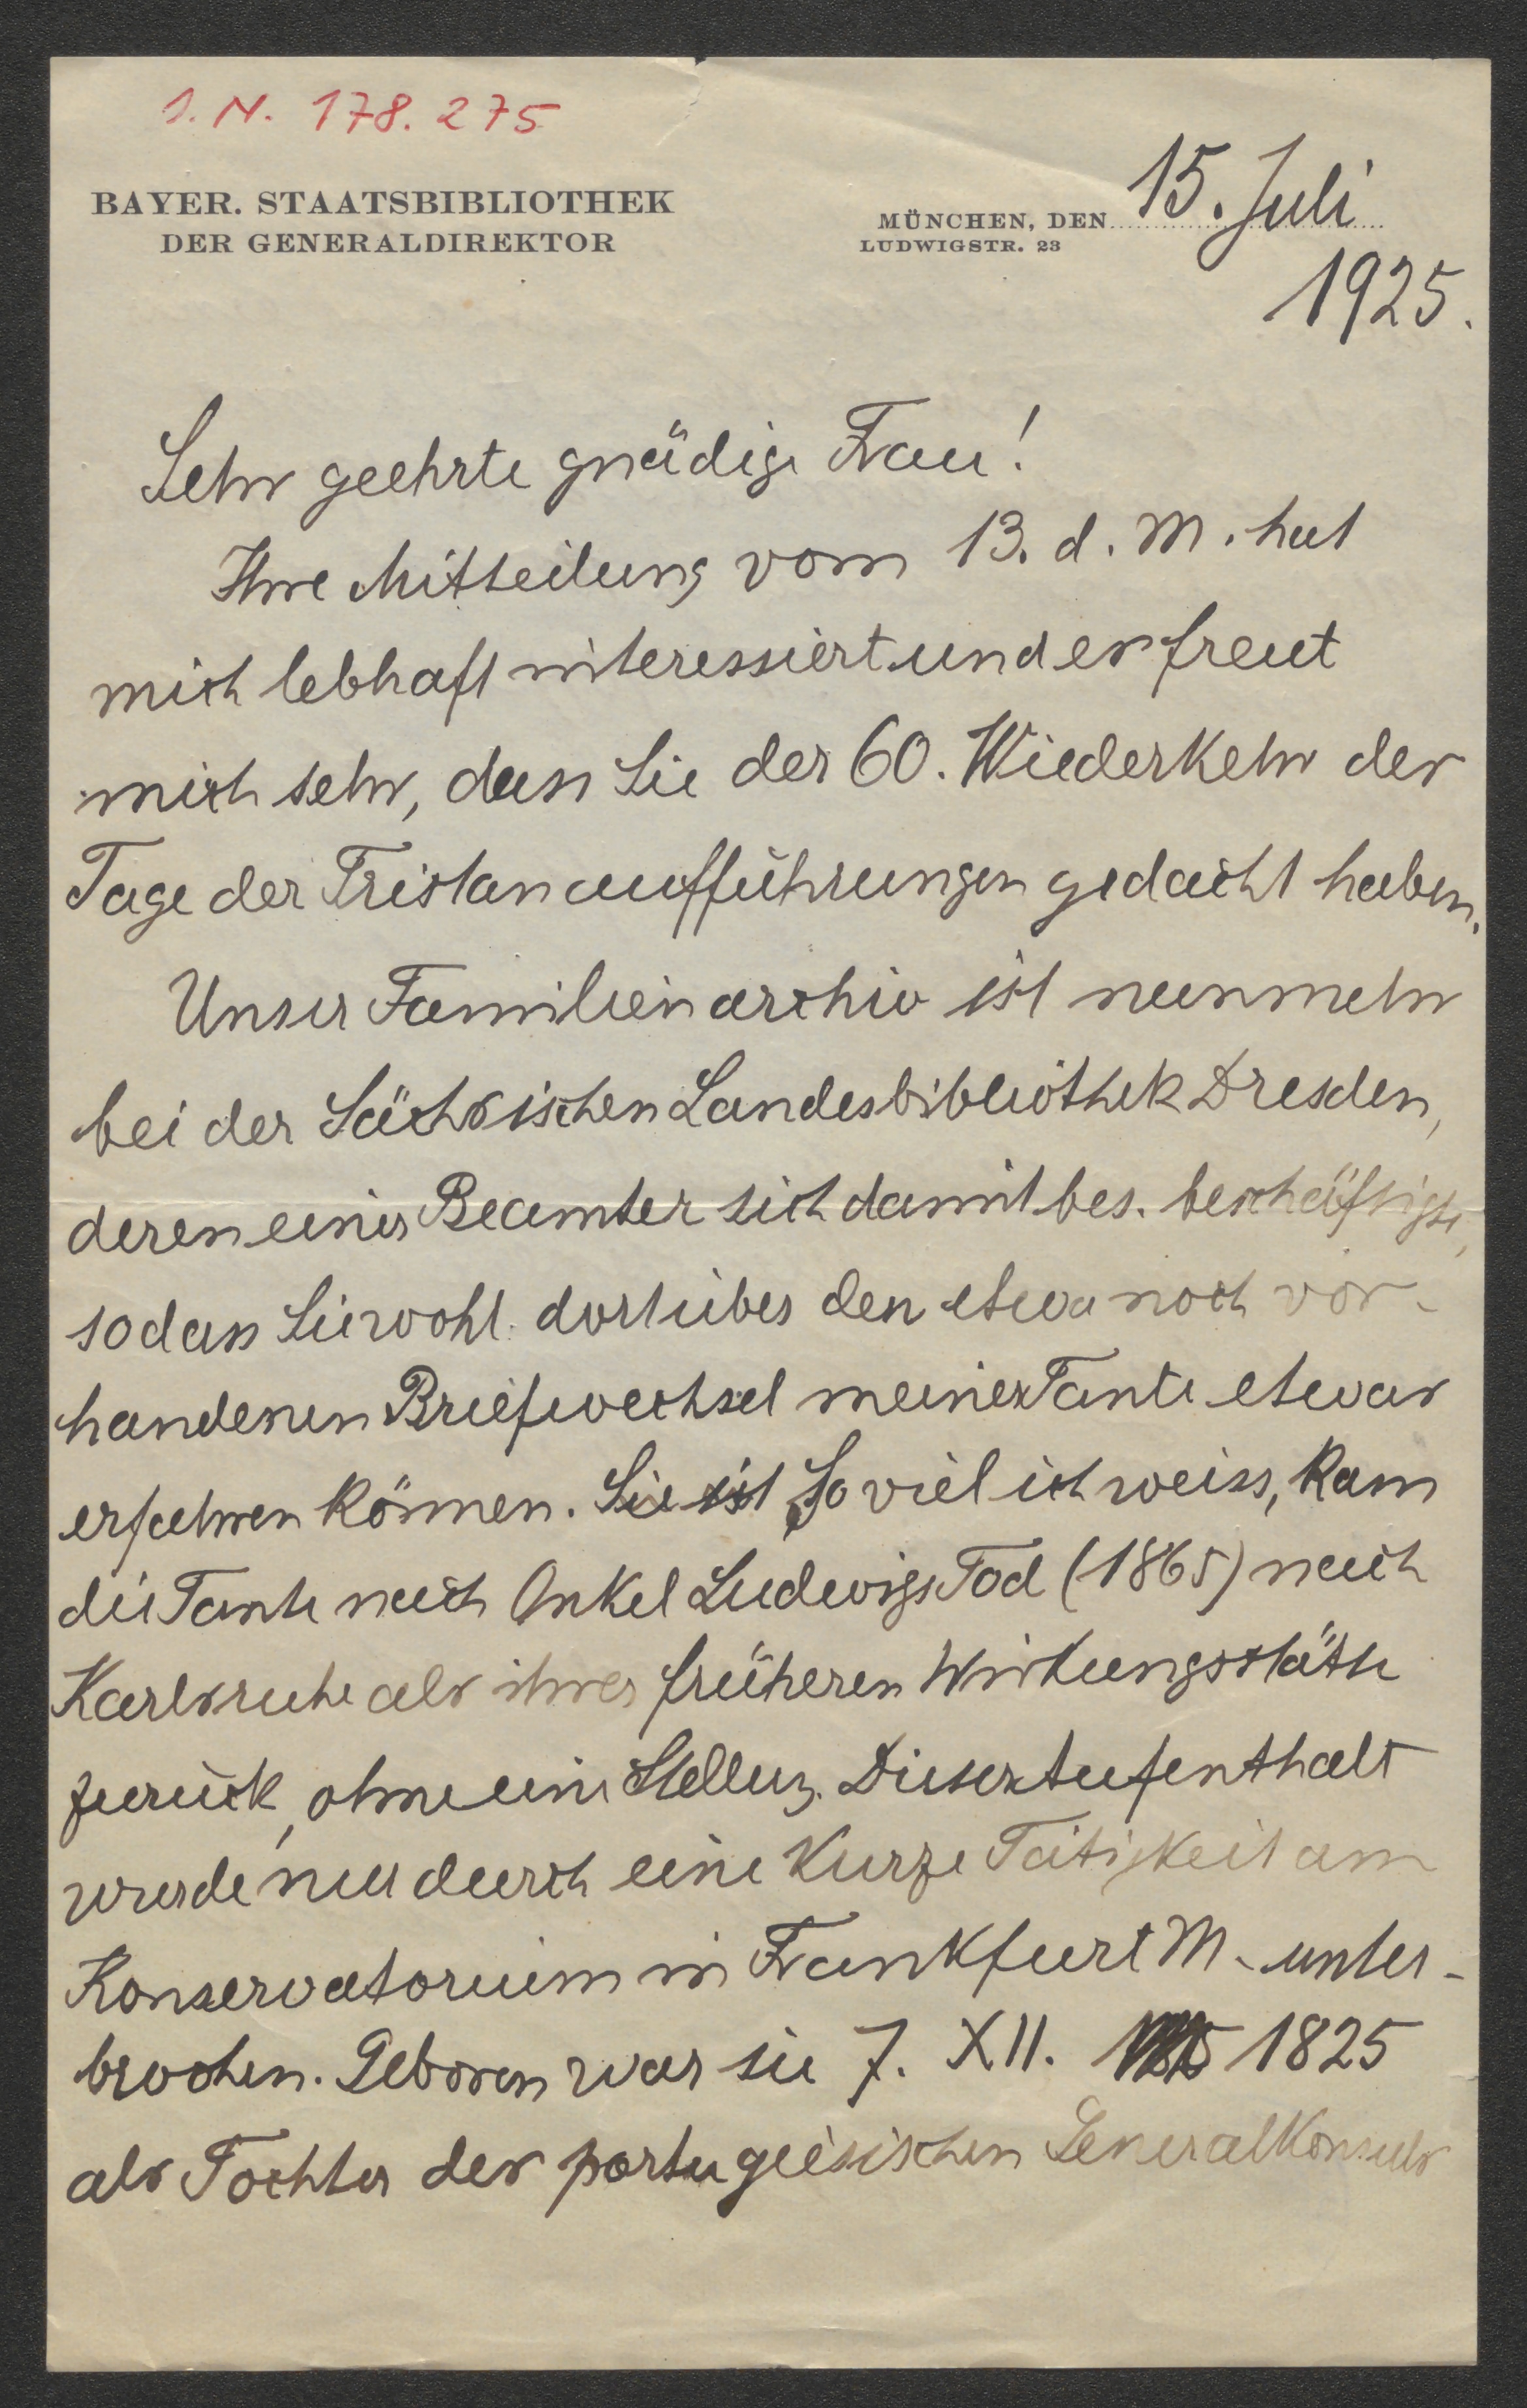 I. N. 178.275
BAYER. STAATSBIBLIOTHEK
DER GENERALDIREKTOR
MÜNCHEN, DEN 15. Juli
LUDWIGSTR. 23
1925.
Sehr geehrte gnädige Frau!
Ihre Mitteilung vom 13. d. M. hat
mich lebhaft interessiert und es freut
mich sehr, dass Sie der 60. Wiederkehr der
Tage der Tristanaufführungen gedacht haben.
Unser Familienarchiv ist nunmehr
bei der Sächsischen Landesbibliothek Dresden,
deren einer Beamter sich damit bes. beschäftigte,
sodass Sie wohl dort über den etwa noch vor-
handenen Briefwechsel meiner Tante etwas
erfahren können. Sie ist So viel ich weiss, kam
die Tante nach Onkel Ludwigs Tod (1865) nach
Karlsruhe als ihrer früheren Wirkungsstätte
zurück, ohne eine Stellung. Dieser Aufenthalt
wurde nur durch eine kurze Tätigkeit am
Konservatorium in Frankfurt M. unter-
brochen. Geboren war sie 7. XII. 1825
als Tochter des portugiesischen Generalkonsuls